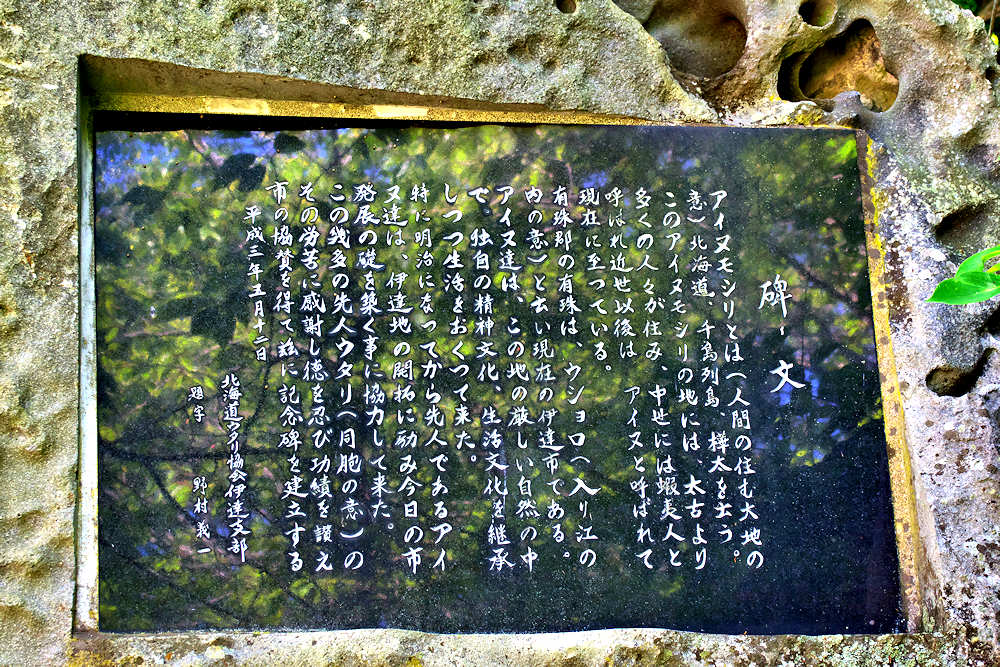 碑文
アイヌモシリとは(人間の住む大地の
意)北海道、千島列島、樺太を云う。
このアイヌモシリの地には、太古より
多くの人々が住み、中世には蝦夷人と
呼ばれ近世以後は アイヌと呼ばれて
現在に至っている。
有珠郡の有珠は、ウショロ(入り江の
内の意)と云い現在の伊達市である。
アイヌ達は、この地の厳しい自然の中
で。独自の精神文化、生活文化を継承
しつつ生活をおくって来た。
特に明治になってから先人であるアイ
ヌ達は、伊達地の開拓に励み今日の市
発展の礎を築く事に協力して来た。
この幾多の先人ウタリ(同胞の意)の
その労苦に感謝し徳を忍び功績を讃え
市の協賛を得て玆に記念碑を建立する
平成三年五月十二日
北海道ウタリ協会伊達支部
題字 野村義一